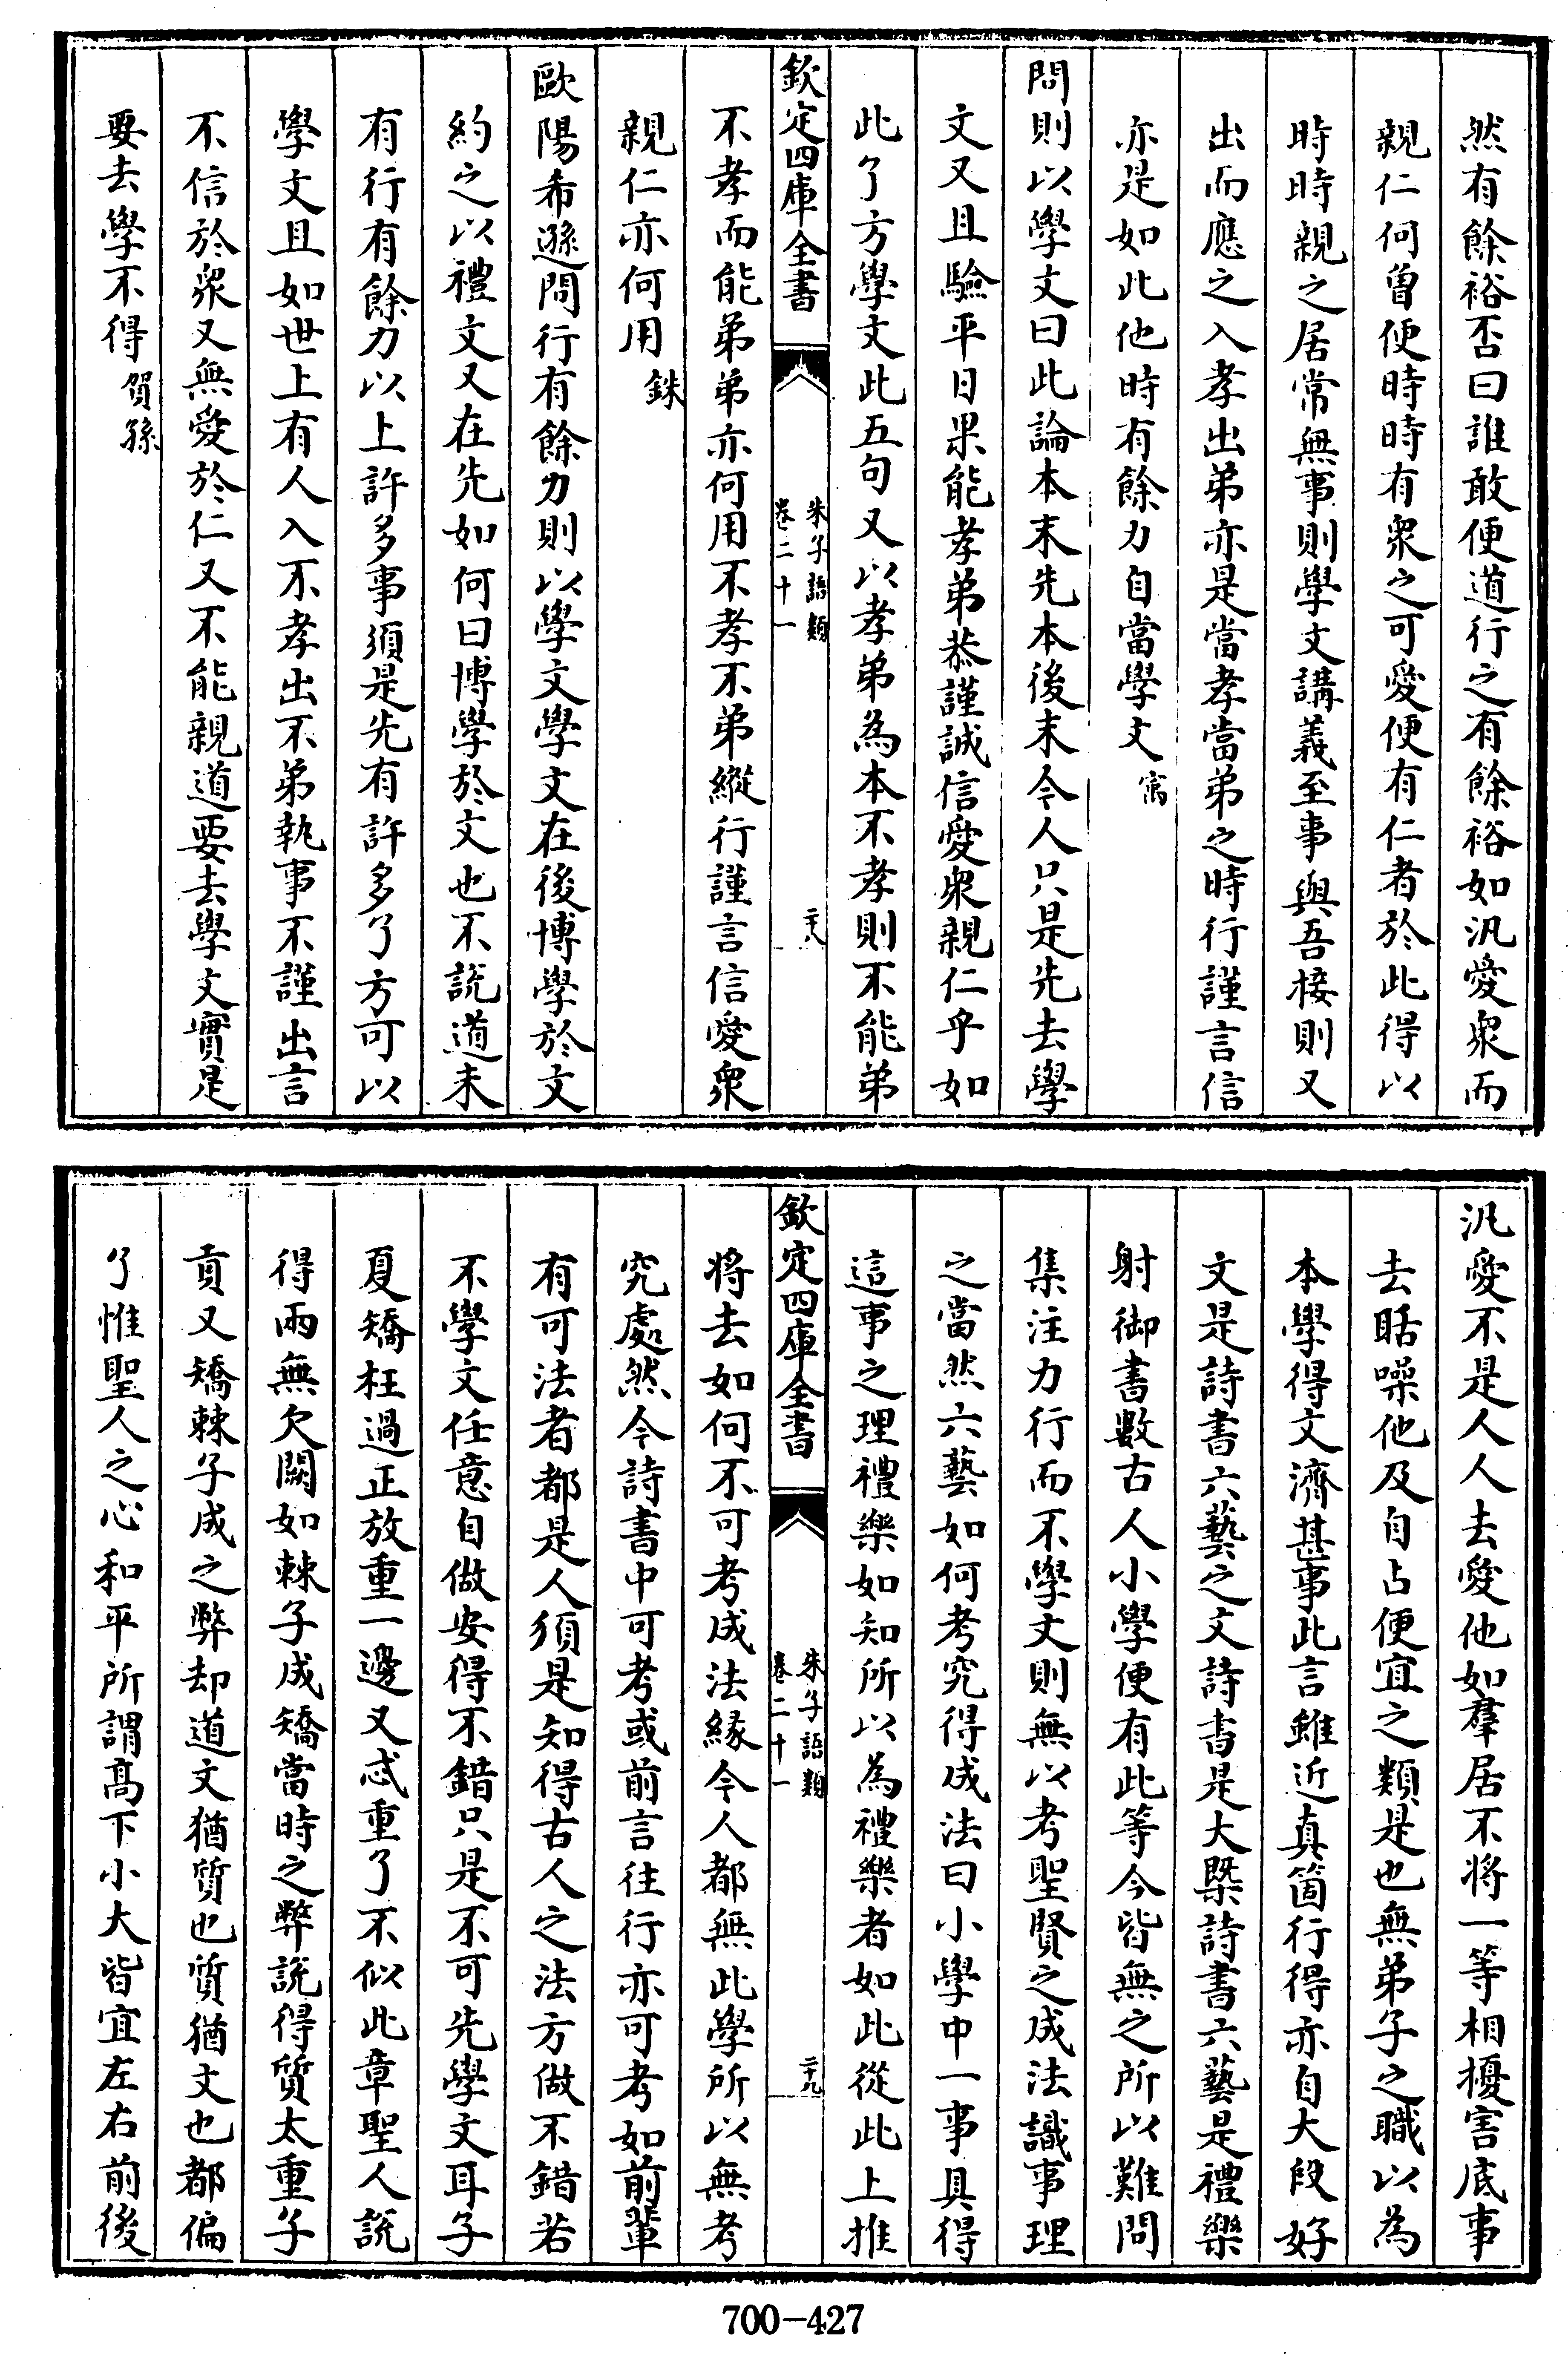 然有餘裕否曰誰敢便道行之有餘裕如汎愛衆而
親仁何曽便時時有衆之可愛便有仁者於此得以
時時親之居常無事則學文講義至事與吾接則又
出而應之入孝出弟亦是當孝當弟之時行謹言信
亦是如此他時有餘力自當學文㝢
問則以學文曰此論本末先本後末今人只是先去學
文又且驗平日果能孝弟恭謹誠信愛衆親仁乎如
此了方學文此五句又以孝弟為本不孝則不能弟
欽定四庫全書
朱子語類
卷二十一
二十八
不孝而能弟弟亦何用不孝不弟縱行謹言信愛衆
親仁亦何用銖
歐陽希遜問行有餘力則以學文學文在後博學於文
約之以禮文又在先如何曰博學於文也不説道未
有行有餘力以上許多事須是先有許多了方可以
學文且如世上有人入不孝出不弟執事不謹出言
不信於衆又無愛於仁又不能親道要去學文實是
要去學不得賀孫
汎愛不是人人去愛他如羣居不將一等相擾害底事
去聒噪他及自占便宜之類是也無弟子之職以為
本學得文濟甚事此言雖近真箇行得亦自大段好
文是詩書六藝之文詩書是大槩詩書六藝是禮樂
射御書數古人小學便有此等今皆無之所以難問
集注力行而不學文則無以考聖賢之成法識事理
之當然六藝如何考究得成法曰小學中一事具得
這事之理禮樂如知所以為禮樂者如此從此上推
欽定四庫全書
朱子語類
卷二十一
二十九
將去如何不可考成法縁今人都無此學所以無考
究處然今詩書中可考或前言往行亦可考如前軰
有可法者都是人須是知得古人之法方做不錯若
不學文任意自做安得不錯只是不可先學文耳子
夏矯枉過正放重一邊又忒重了不似此章聖人説
得兩無欠闕如棘子成矯當時之弊説得質太重子
貢又矯棘子成之弊却道文猶質也質猶文也都偏
了惟聖人之心和平所謂髙下小大皆宜左右前後
700-427